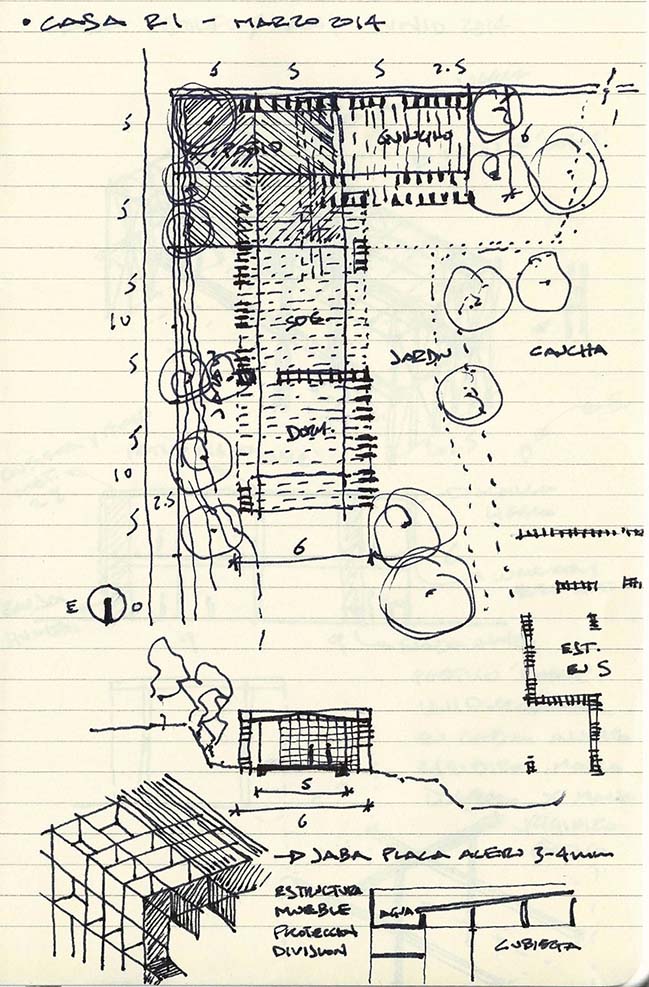 • CASA R1 - MARZO 2014
5 5 5 2.5
5
6
5
5
10
SOG
JARDIN
CANCHA
5
5
DORM.
10
2.5
5
6
E O
EST.
EN S
5
6
JABA PLACA ACERO 3-4mm
ESTRUCTURA
MUEBLE
PROTECCION
DIVISION
AGUA
CUBIERTA